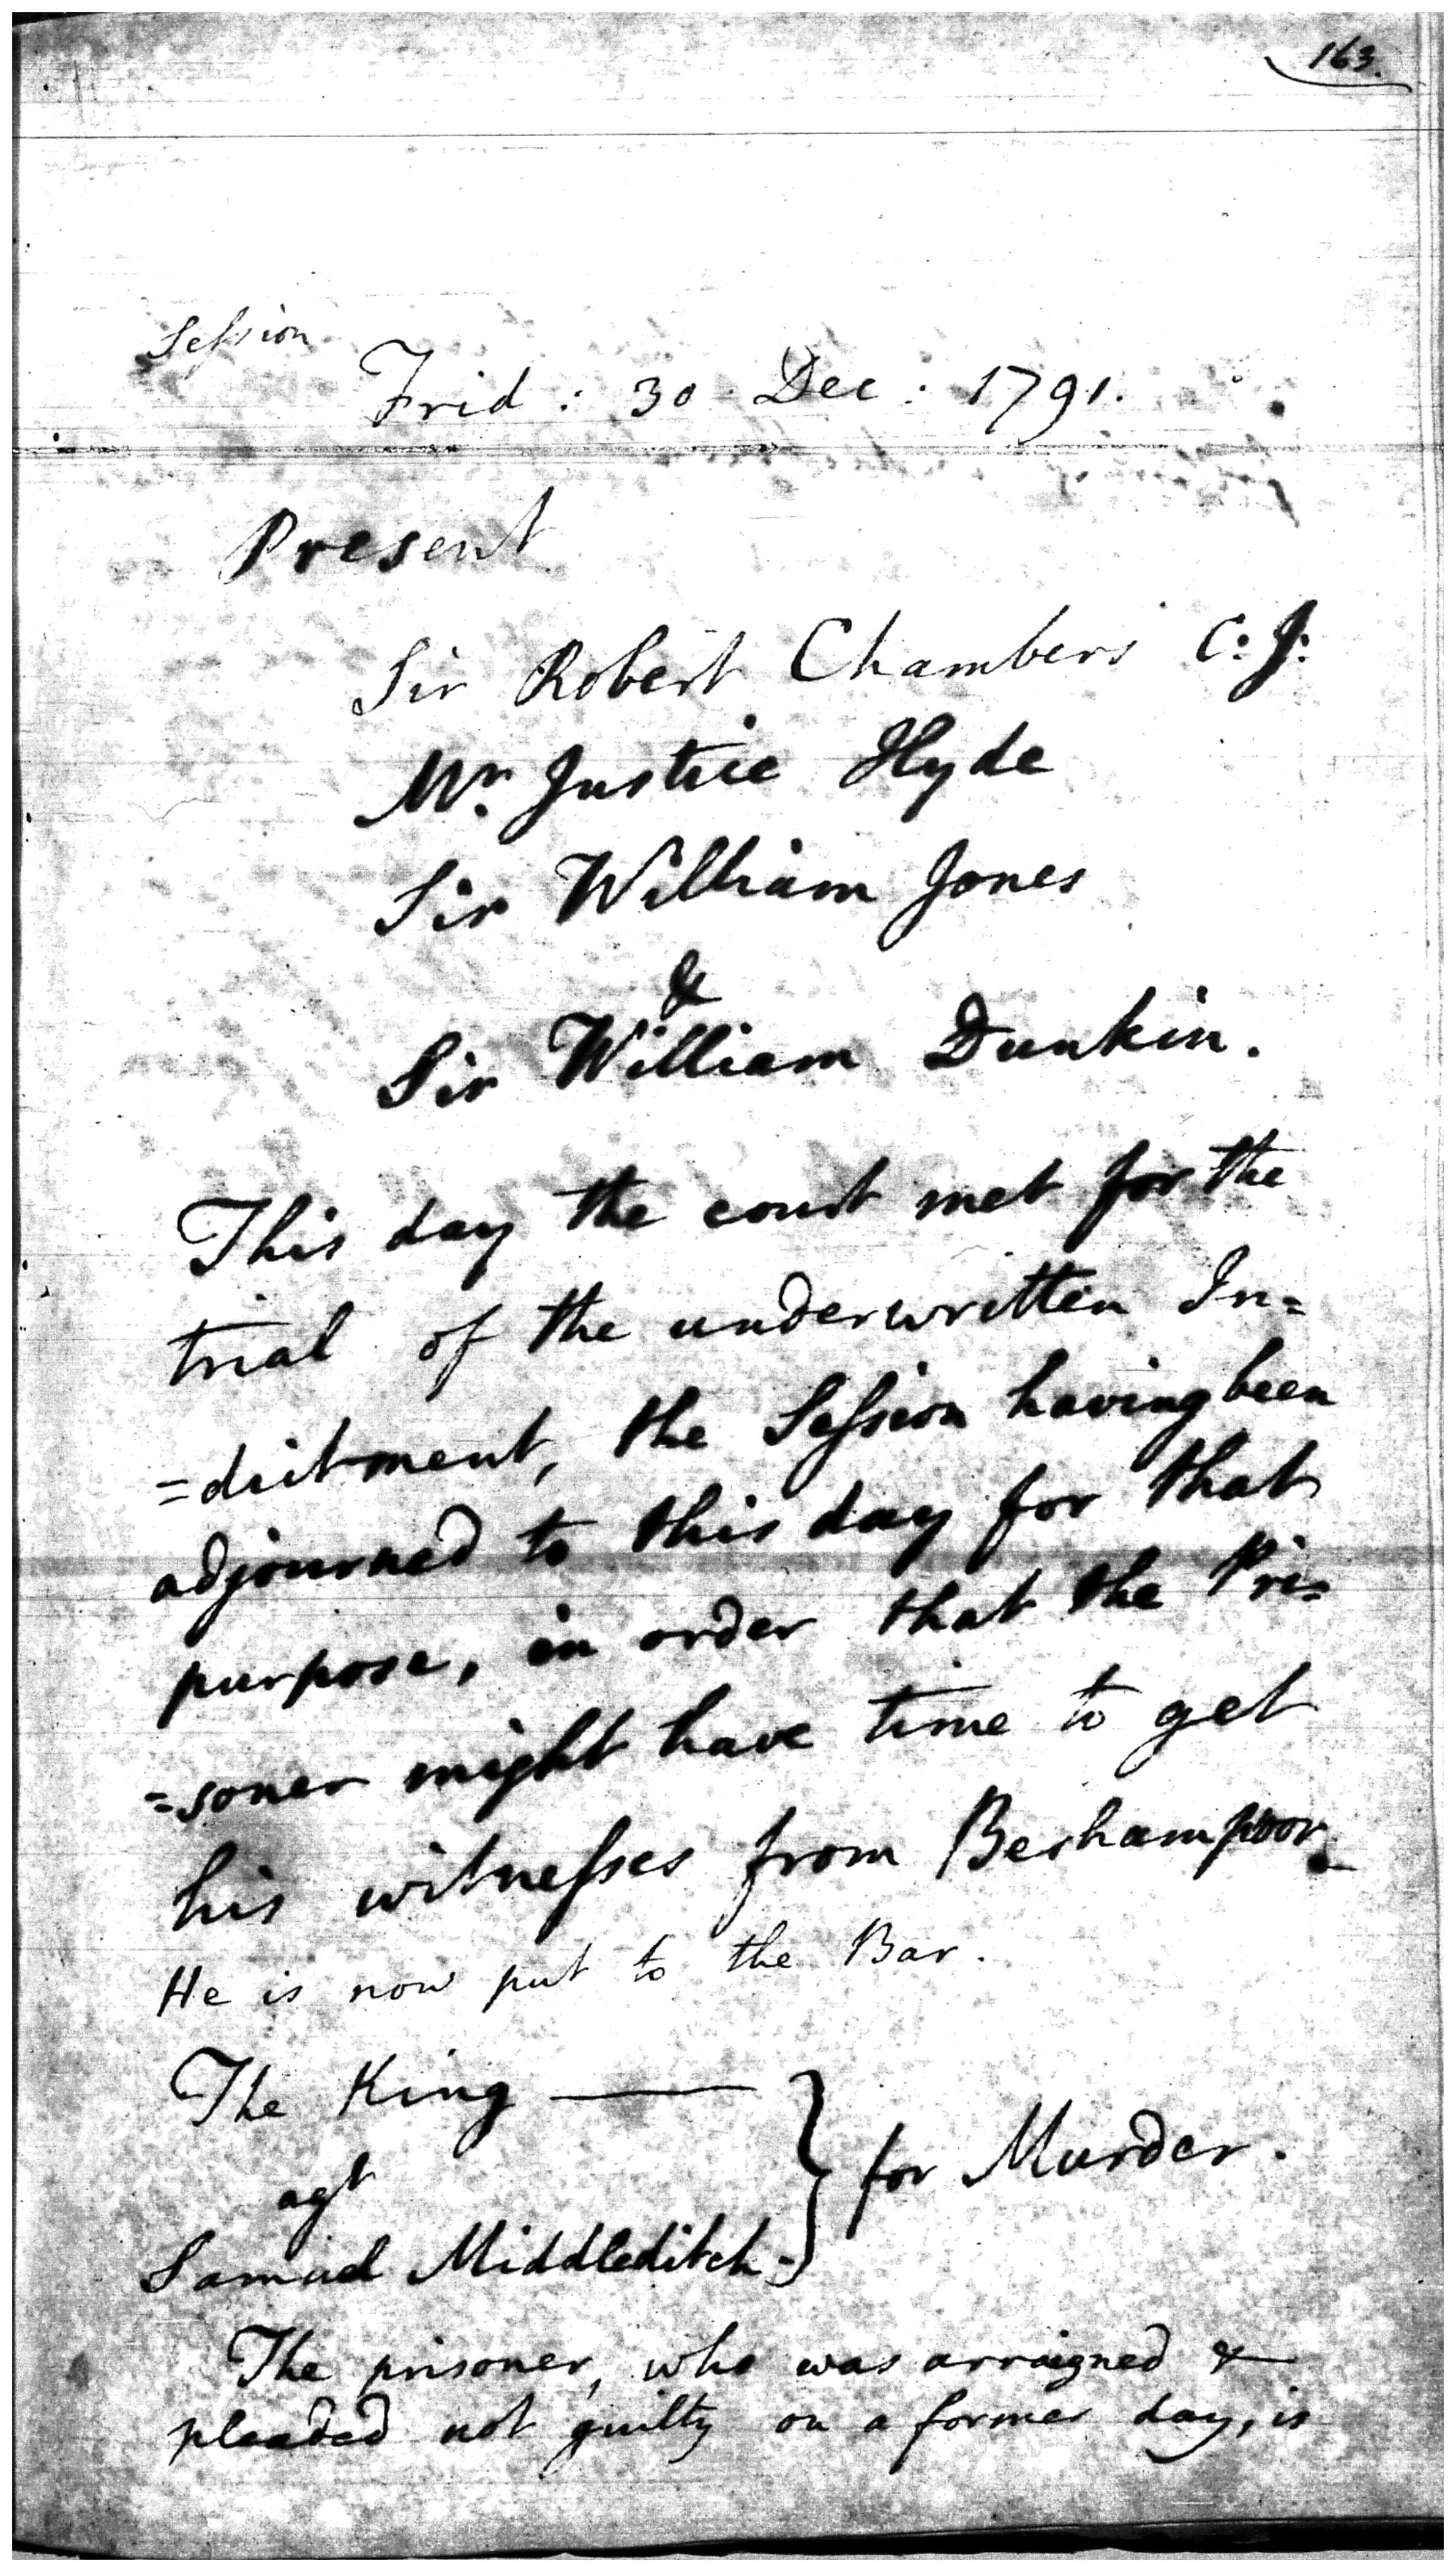 163.
Session
Frid: 30 Dec: 1791.
Present
Sir Robert Chambers C: J:
Mr. Justice Hyde
Sir William Jones
&
Sir William Dunkin.
This day the court met for the
trial of the underwritten In=
=dictment, the Session having been
adjourned to this day for that
purpose, in order that the Pri=
=soner might have time to get
his witnesses from Berhampoor.
He is now put to the Bar.
The King —
agt
} for Murder.
Samuel Middleditch.
The prisoner, who was arraigned &
pleaded not guilty on a former day, is